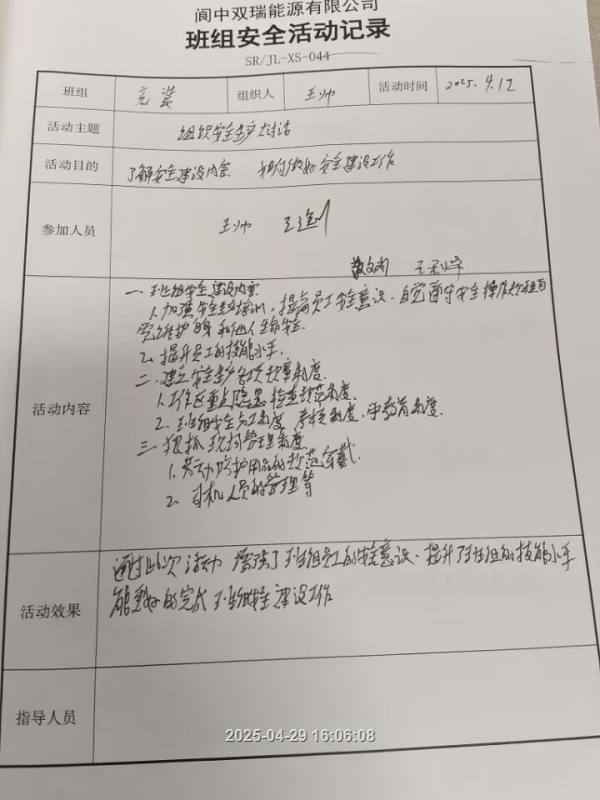 阆中双瑞能源有限公司
班组安全活动记录
SR/JL-XS-044
班组 充装 组织人 王帅 活动时间 2025.4.12
活动主题 组织安全生产大讨论
活动目的 了解安全建设内容 如何做好安全建设工作
参加人员 王帅
活动内容
一、班组安全建设内容
1.加强安全生产培训,提高员工安全意识,自觉遵守安全操作规程自
觉维护自身和他人生命安全.
2.提升员工的技能水平.
二、建立安全生产各项规章制度.
1.工作区重点隐患检查规范制度.
2.班组安全员工制度、考核制度、
三、狠抓现场管理制度
1.劳动防护用品的规范穿戴.
2.司机人员的管理等
活动效果
通过此次活动 增强了班组员工的安全意识、提升了班组的技能水平
能更好的完成 班组安全建设工作
指导人员
2025-04-29 16:06:08